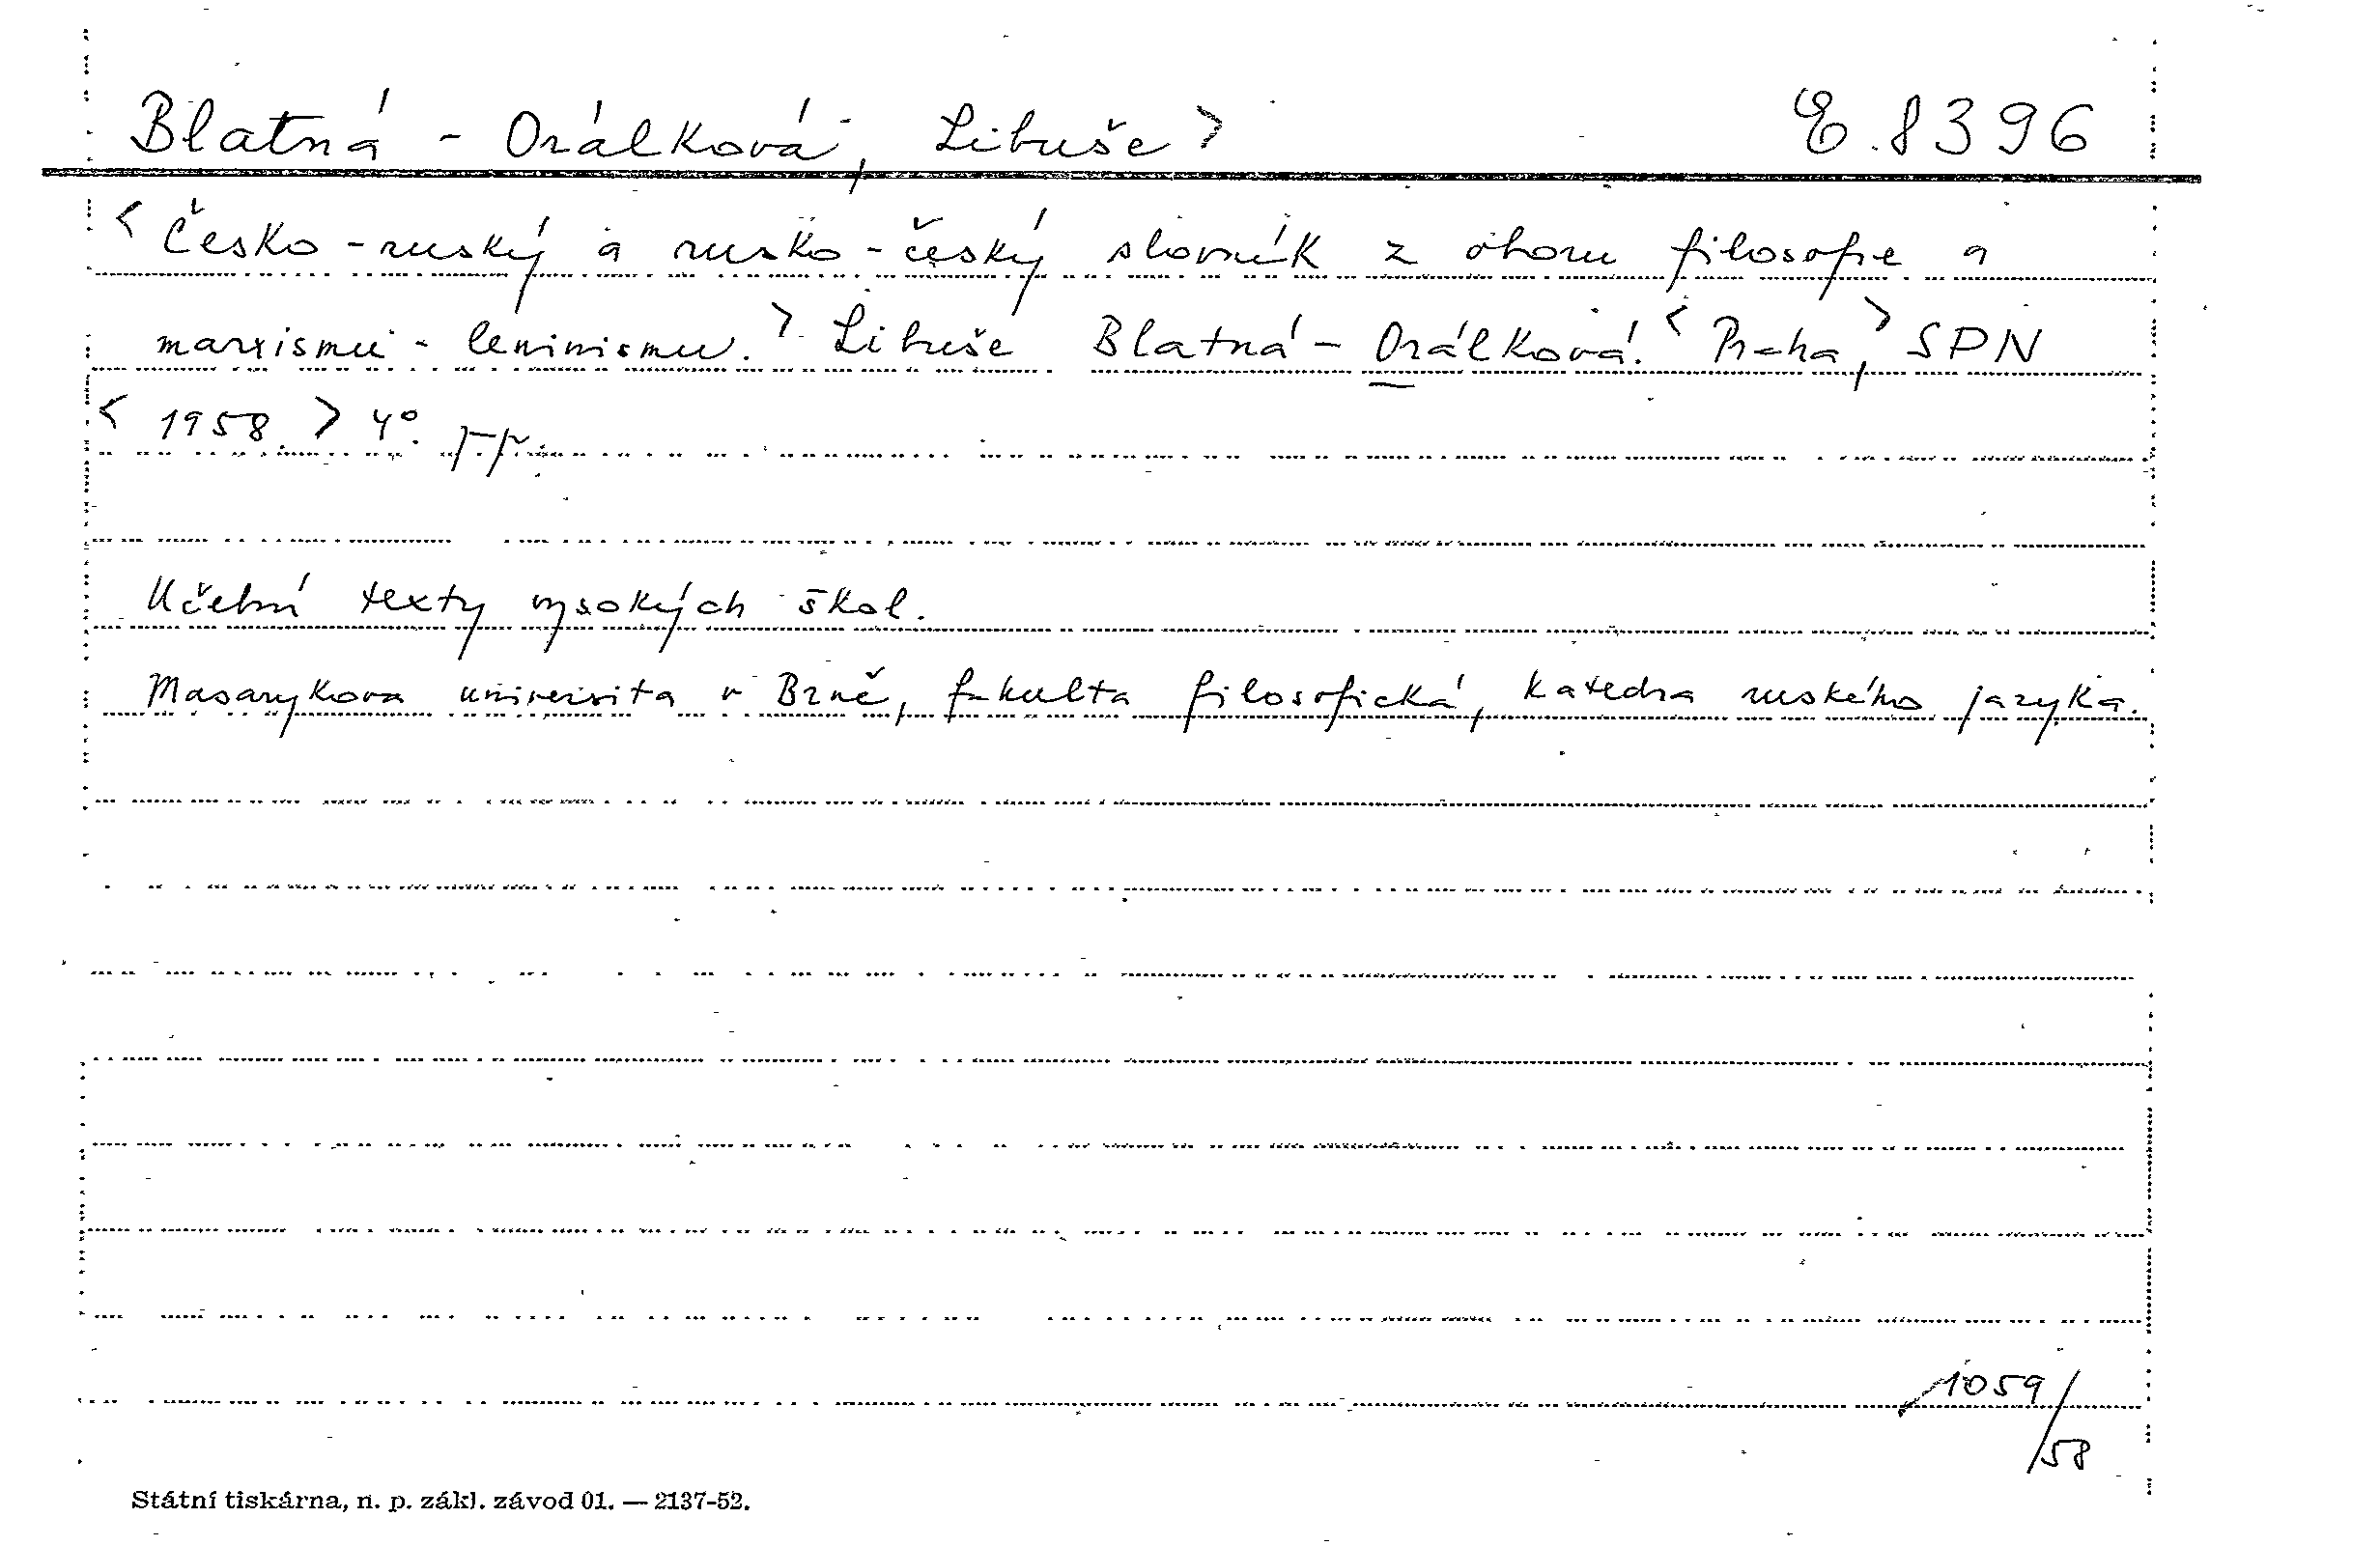 Blatná - Orálková, Libuše > E. 8396
< Česko-ruský a rusko-český slovník z oboru filosofie a
marxismu-leninismu. > Libuše Blatná - Orálková. < Praha, > SPN
< 1958. > 4°.
Učební texty vysokých škol.
Masarykova universita v Brně, fakulta filosofická, katedra ruského jazyka.
1059/
58
Státní tiskárna, n. p. zákl. závod 01. — 2137-52.